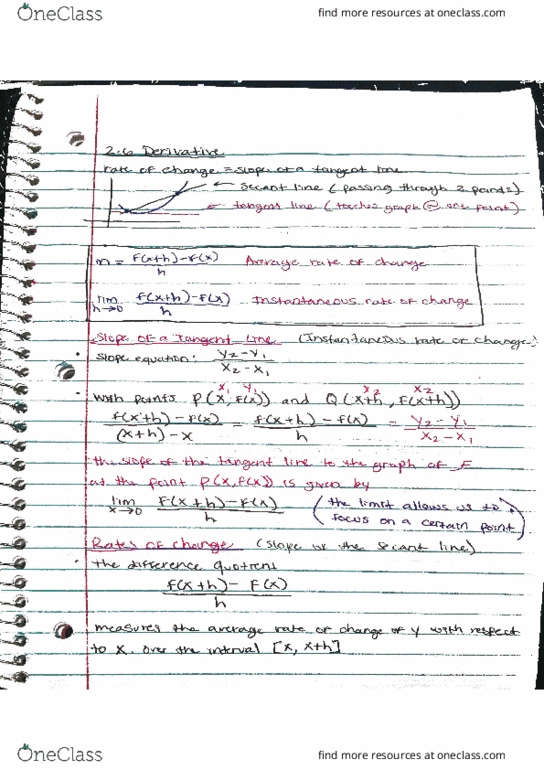 OneClass find more resources at oneclass.com
2.6 Derivative
rate of change = slope of a tangent line
← secant line (passing through 2 points)
← tangent line (touches graph @ one point)
m = F(x+h)-F(x) / h Average rate of change
lim h→0 F(x+h)-F(x) / h Instantaneous rate of change
Slope of a Tangent Line (Instantaneous rate of change)
• Slope equation: y2-y1 / x2-x1
x1 y1 y2 x2
• with points P(x, f(x)) and Q(x+h, f(x+h))
f(x+h)-f(x) / (x+h)-x = f(x+h)-f(x) / h = y2-y1 / x2-x1
the slope of the tangent line to the graph of F
at the point P(x, f(x)) is given by
lim x→0 F(x+h)-F(x) / h (the limit allows us to
focus on a certain point.)
Rates of change (slope of the secant line)
• the difference quotient
f(x+h)- F(x) / h
measures the average rate of change of y with respect
to x. over the interval [x, x+h]
OneClass find more resources at oneclass.com